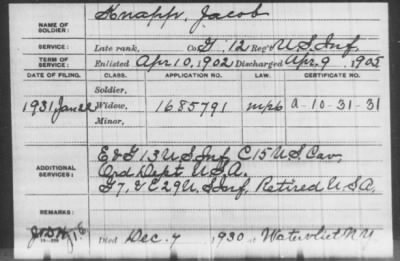 NAME OF SOLDIER: Knapp, Jacob
SERVICE: Late rank, Co G, 12 Reg't U.S. Inf.
TERM OF SERVICE: Enlisted Apr 10, 1902 Discharged Apr. 9, 1905
DATE OF FILING. CLASS. APPLICATION NO. LAW. CERTIFICATE NO.
Soldier,
1931 Jan 22 Widow, 1685791 a-10-31-31
Minor,
ADDITIONAL SERVICES: E & G 13 U S Inf, C 15 U.S. Cav,
Ord Dept U.S.A.
G 7, & C 29 U.S. Inf, Retired U.S.A.
REMARKS:
Died Dec. 7, 1930 at Watervliet N.Y.